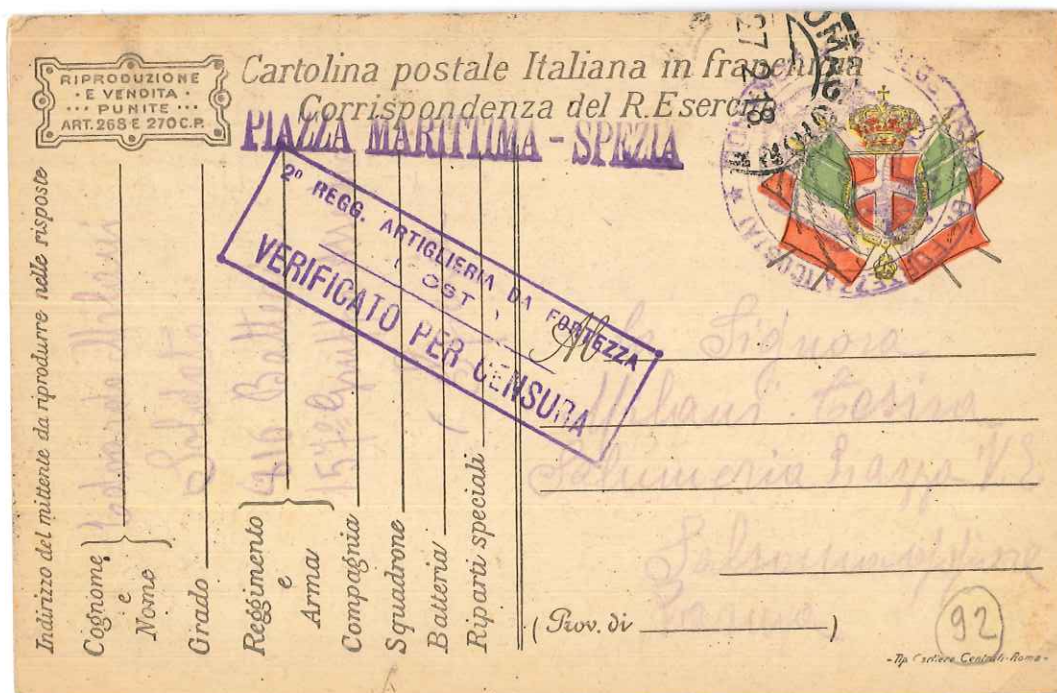 RIPRODUZIONE
· E VENDITA ·
··· PUNITE ···
ART. 268 E 270 C.P.
Cartolina postale Italiana in franchigia
Corrispondenza del R. Esercito
PIAZZA MARITTIMA - SPEZIA
27 2 18
2º REGG. ARTIGLIERIA DA FORTEZZA
VERIFICATO PER CENSURA
Indirizzo del mittente da riprodurre nelle risposte
Cognome e Nome
Milani
Grado
Soldato
Reggimento e Arma
416 Batt
Compagnia
Squadrone
Batteria
Riparti speciali
Alla Signora
Milani
Salumeria Piazza V E
Salsomaggiore
(Prov. di Parma)
92
- Tip. Cartiere Centrali - Roma -